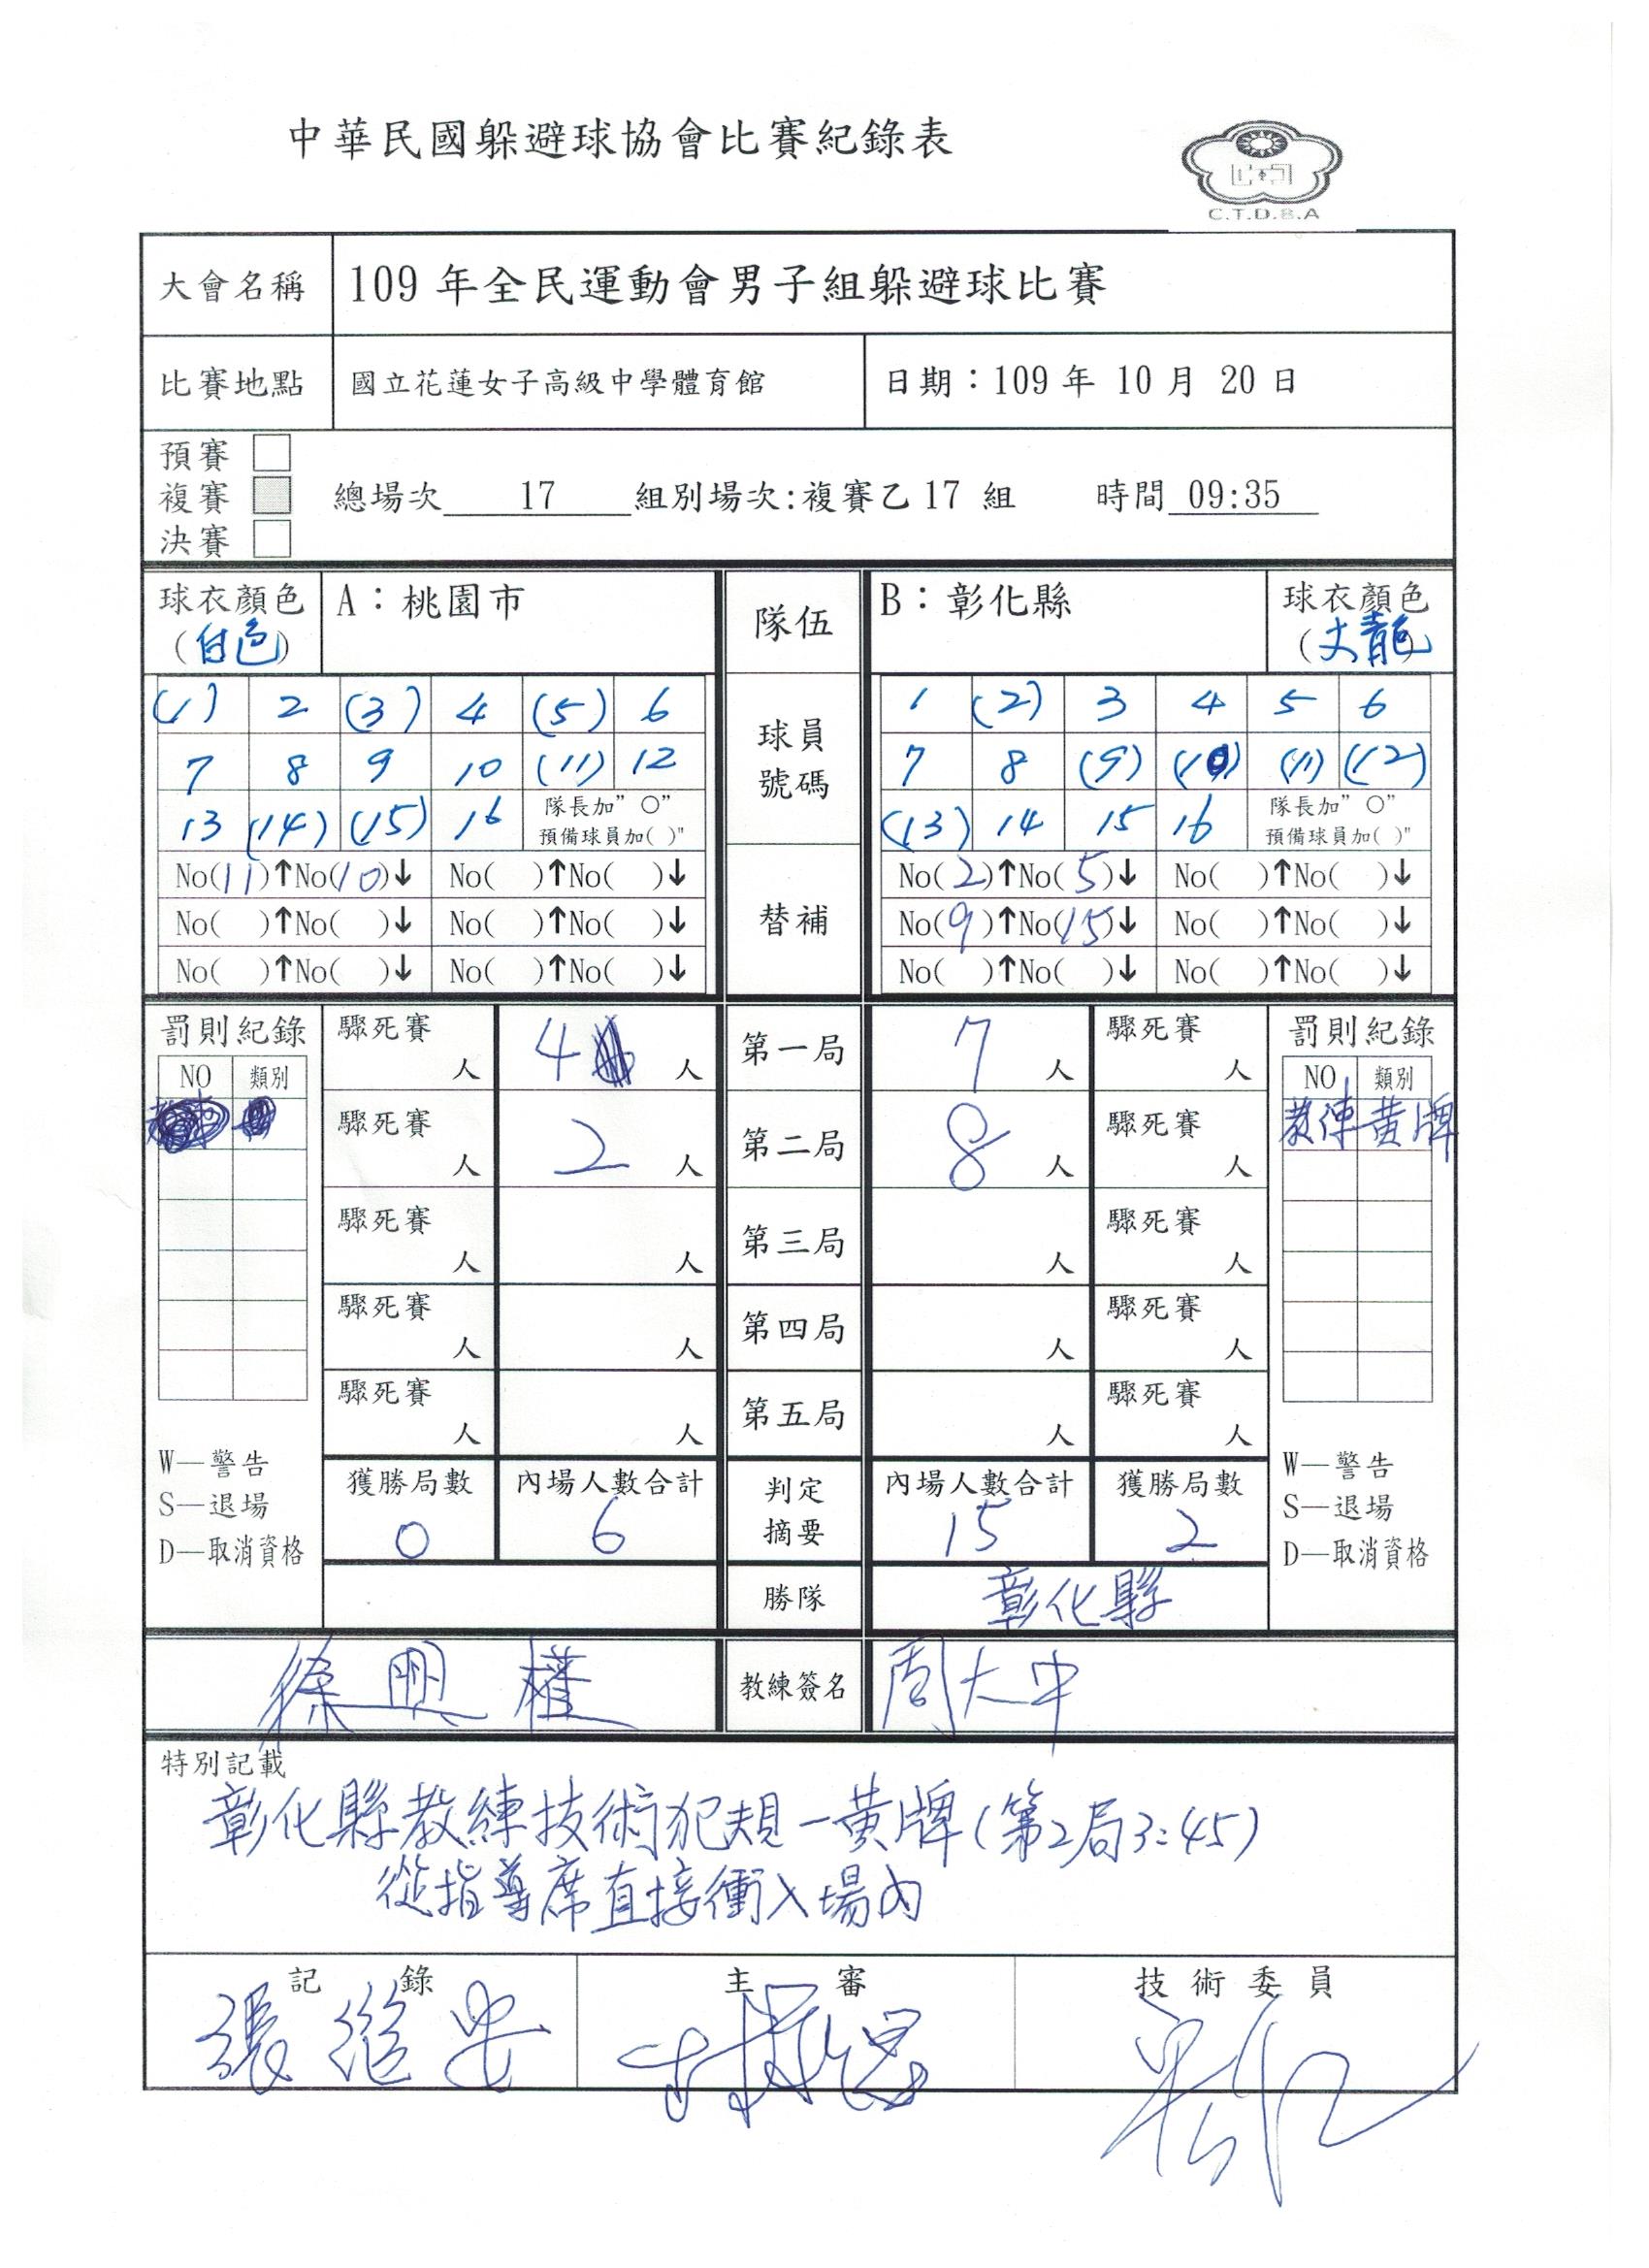 中華民國躲避球協會比賽紀錄表
C.T.D.B.A
大會名稱 109 年全民運動會男子組躲避球比賽
比賽地點 國立花蓮女子高級中學體育館 日期：109 年 10 月 20 日
預賽
複賽 總場次 17 組別場次:複賽乙 17 組 時間 09:35
決賽
球衣顏色 A：桃園市 隊伍 B：彰化縣 球衣顏色
(白色)
(1) 2 (3) 4 (5) 6 球員 1 (2) 3 4 5 6
7 8 9 10 (11) 12 號碼 7 8 (9) (10) (11) (12)
13 (14) (15) 16 隊長加"○" (13) 14 15 16 隊長加"○"
預備球員加( )" 預備球員加( )"
No(11)↑No(10)↓ No( )↑No( )↓ 替補 No(2)↑No(5)↓ No( )↑No( )↓
No( )↑No( )↓ No( )↑No( )↓ No(9)↑No(15)↓ No( )↑No( )↓
No( )↑No( )↓ No( )↑No( )↓ No( )↑No( )↓ No( )↑No( )↓
罰則紀錄 驟死賽 人 4 人 第一局 7 人 驟死賽 人 罰則紀錄
NO 類別 NO 類別
驟死賽 人 2 人 第二局 8 人 驟死賽 人 教練 黃牌
驟死賽 人 人 第三局 人 驟死賽 人
驟死賽 人 人 第四局 人 驟死賽 人
驟死賽 人 人 第五局 人 驟死賽 人
W—警告 獲勝局數 內場人數合計 判定 內場人數合計 獲勝局數 W—警告
S—退場 0 6 摘要 15 2 S—退場
D—取消資格 D—取消資格
勝隊 彰化縣
徐興權 教練簽名 周大中
特別記載
彰化縣教練技術犯規一黃牌(第2局3:45)
從指導席直接衝入場內
記錄 主審 技術委員